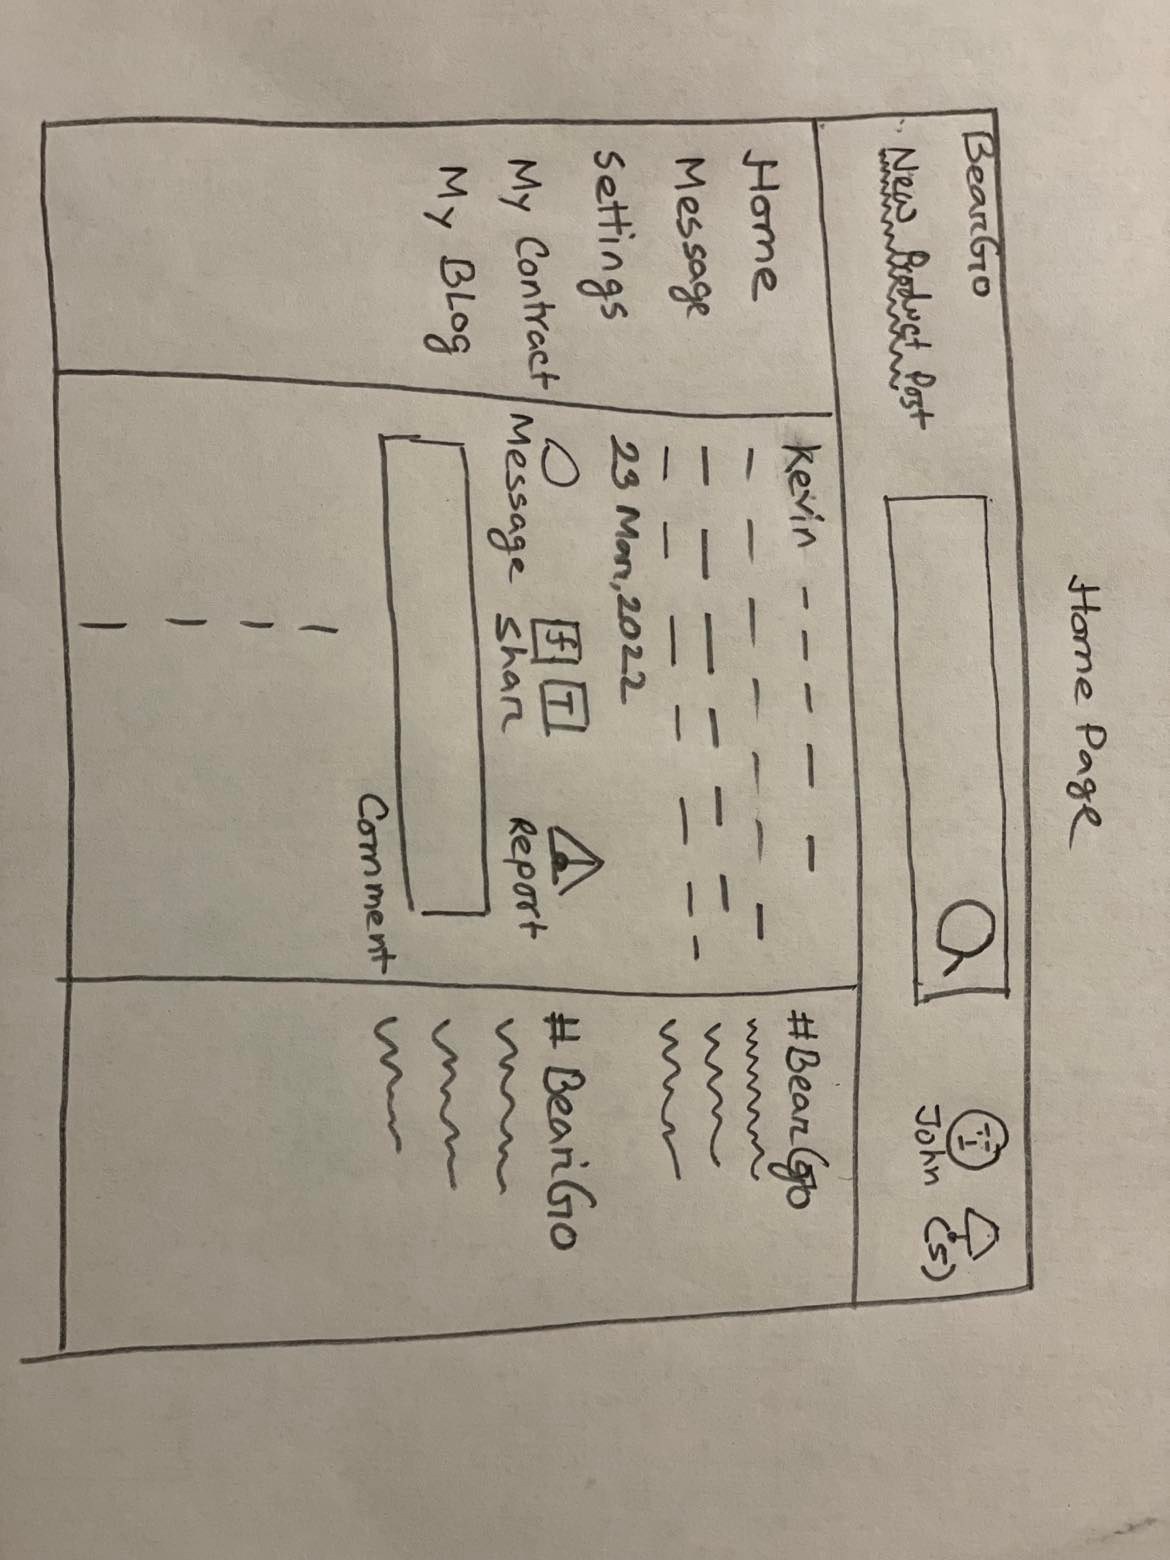 Home Page
BearGo
New Product Post
John (5)
Home
Message
Settings
My Contract
My BLog
Kevin
23 Mar, 2022
Message
f T
Share
Report
Comment
#BearGo
# BearGo